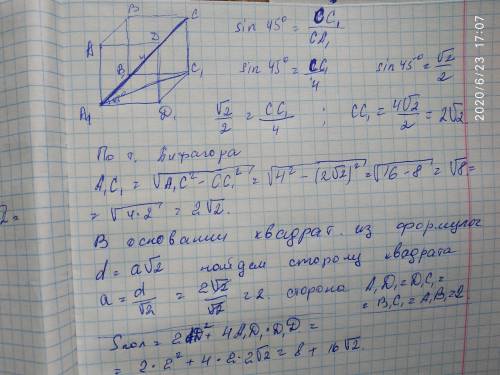 B
C
A
D
4
B₁
C₁
A₁
45°
D₁
sin 45° = CC₁/CA₁
sin 45° = CC₁/4
sin 45° = √2/2
√2/2 = CC₁/4 ; CC₁ = 4√2/2 = 2√2
По т. Пифагора
A₁C₁ = √(A₁C² - CC₁²) = √(4² - (2√2)²) = √(16 - 8) = √8 =
= √(4·2) = 2√2.
В основании квадрат. из формулы
d = a√2 найдем сторону квадрата
a = d/√2 = 2√2/√2 = 2. сторона A₁D₁ = D₁C₁ =
= B₁C₁ = A₁B₁ = 2
Sпол = 2AD² + 4A₁D₁·D₁D =
= 2·2² + 4·2·2√2 = 8 + 16√2.
2 =
2020/6/23 17:07